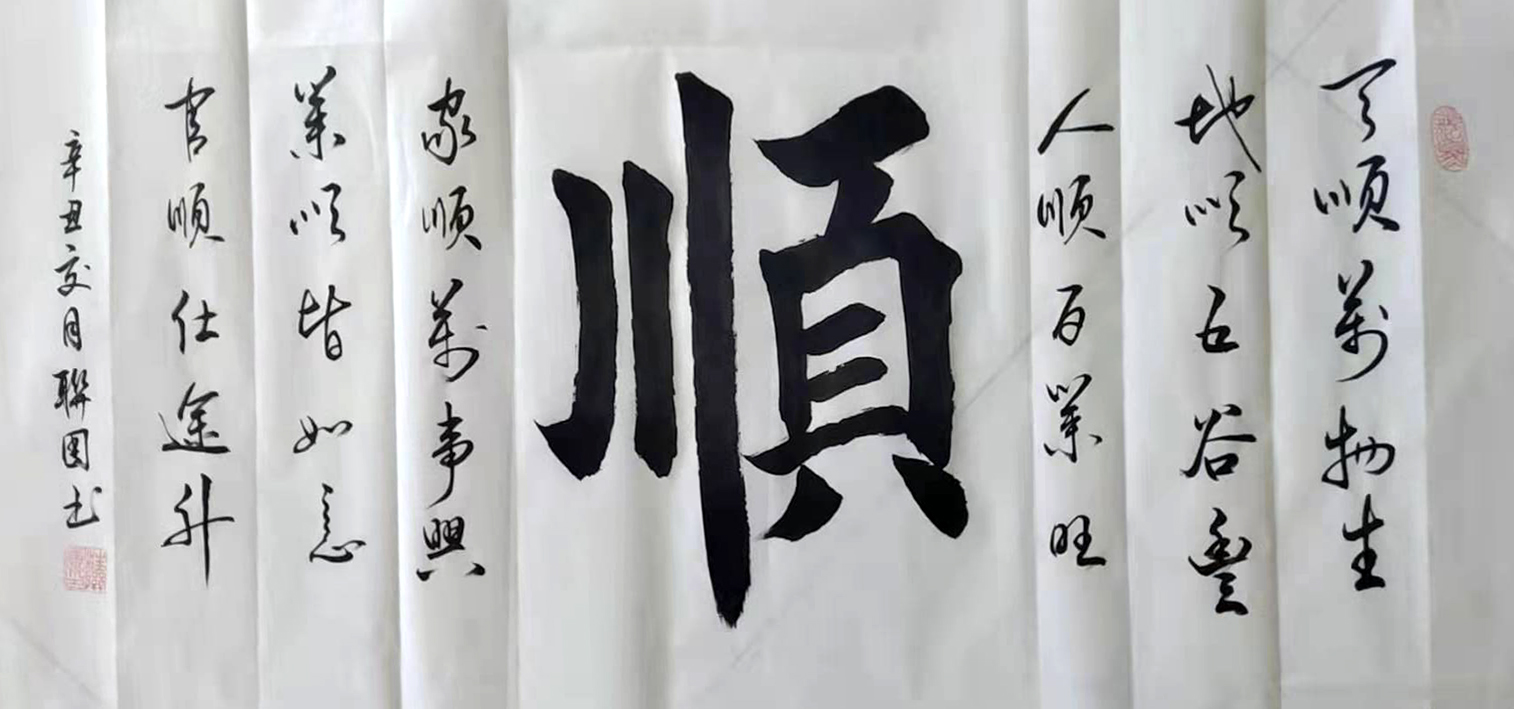 天順萬物生
地順五谷豐
人順百業旺
順
家順萬事興
業順皆如意
官順仕途升
辛丑交月聯國书